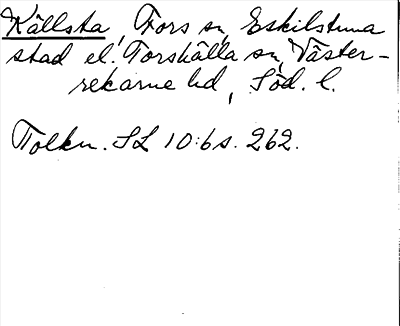 Källsta, Fors sn, Eskilstuna
stad el. Torshälla sn, Väster-
rekarne hd, Söd. l.
Tolkn. SL 10:6 s. 262.